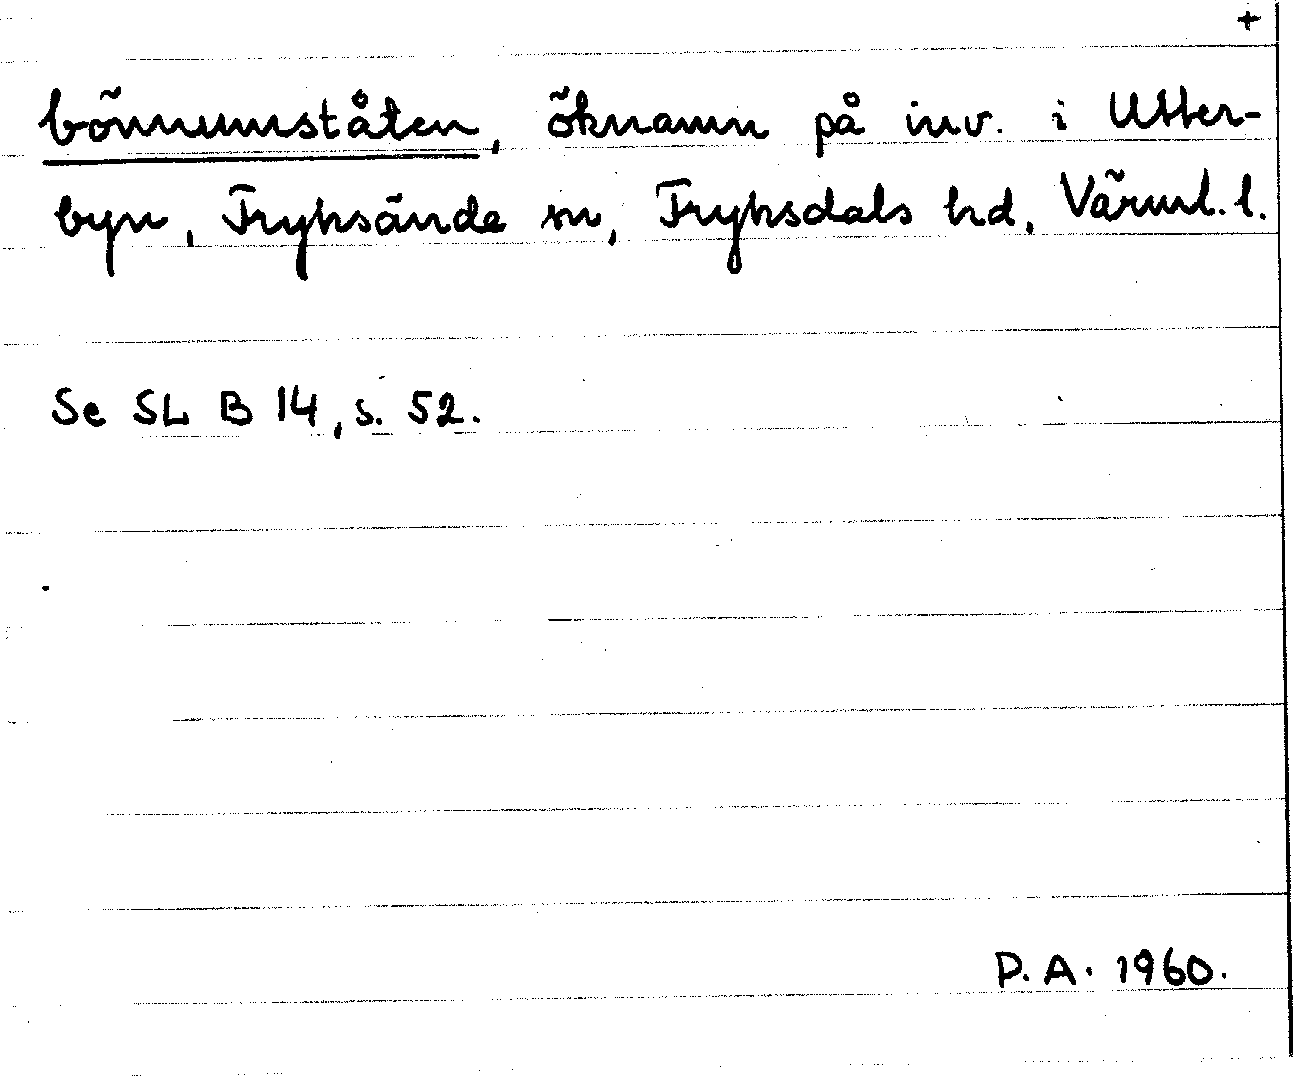 +
bönnumståten, öknamn på inv. i Utter-
byn, Fryksände sn, Fryksdals hd, Värml. l.
Se SL B 14, s. 52.
P.A. 1960.